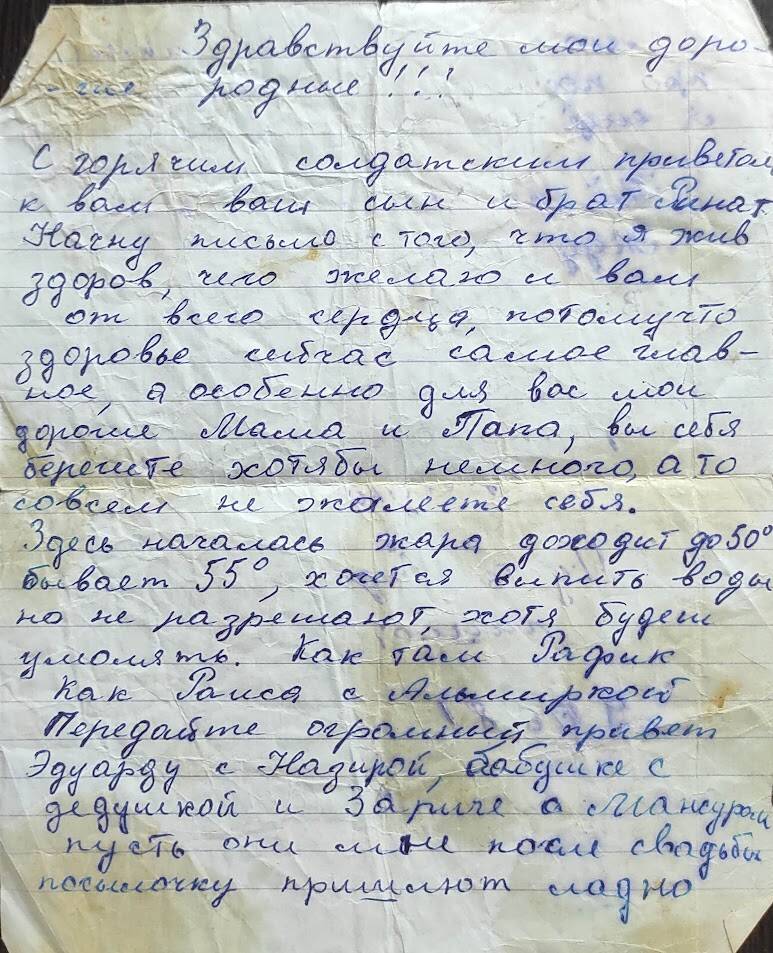 Здравствуйте мои доро-
-гие родные!!!
С горячим солдатским приветом
к вам ваш сын и брат Ринат
Начну письмо с того, что я жив
здоров, чего желаю и вам
от всего сердца, потомучто
здоровье сейчас самое глав-
ное, а особенно для вас мои
дорогие Мама и Папа, вы себя
берегите хотябы немного, а то
совсем не жалеете себя.
Здесь началась жара доходит до 50°
бывает 55°, хочется выпить воды
но не разрешают, хотя будеш
умолять. Как там Рафик
Как Раиса с Альмиркой
Передайте огромный привет
Эдуарду с Назирой, бабушке с
дедушкой и Зариче с Мансуром
пусть они мне после свадьбы
посылочку пришлют ладно